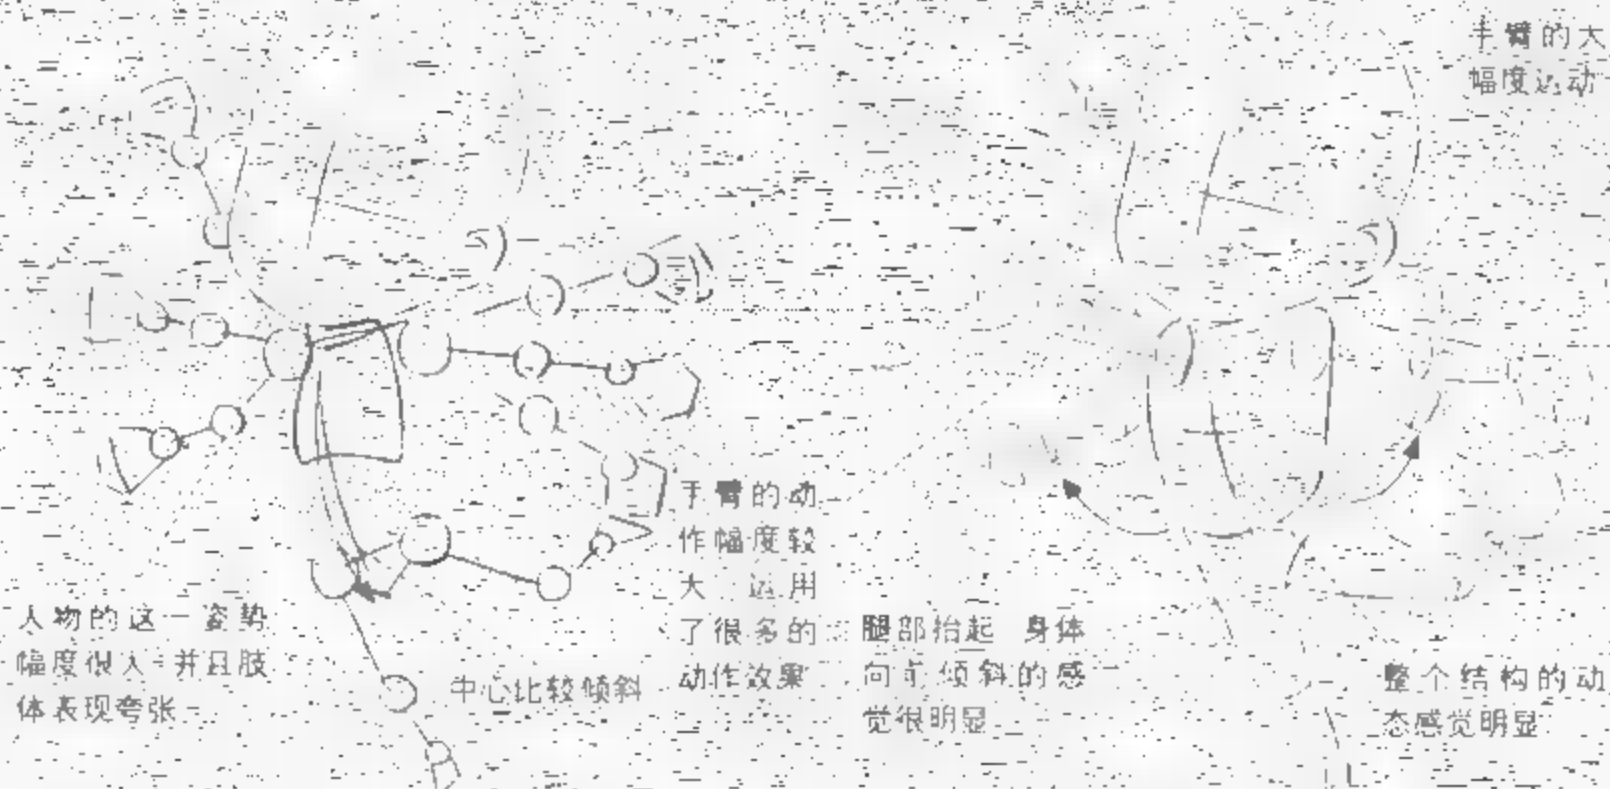 手臂的大
幅度运动
手臂的动
作幅度较
大 运用
了很多的
动作效果
人物的这一姿势
幅度很大 并且肢
体表现夸张
中心比较倾斜
腿部抬起 身体
向前倾斜的感
觉很明显
整个结构的动
态感觉明显